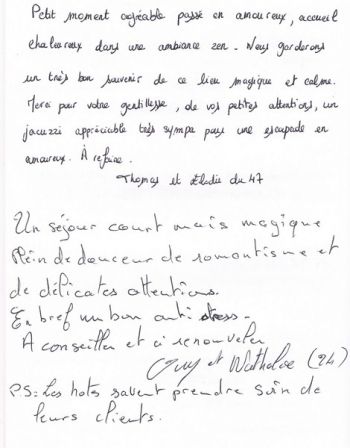 Petit moment agréable passé en amoureux, accueil
chaleureux dans une ambiance zen. Nous garderons
un très bon souvenir de ce lieu magique et calme.
Merci pour votre gentillesse, de vos petites attentions, un
jacuzzi appréciable très sympa pour une escapade en
amoureux. À refaire.
Thomas et Elodie du 47
Un séjour court mais magique
Plein de douceur de romantisme et
de délicates attentions.
En bref un bon anti stress.
A conseiller et à renouveler
Guy et Nathalie (24)
P.S: Les hotes savent prendre soin de
leurs clients.